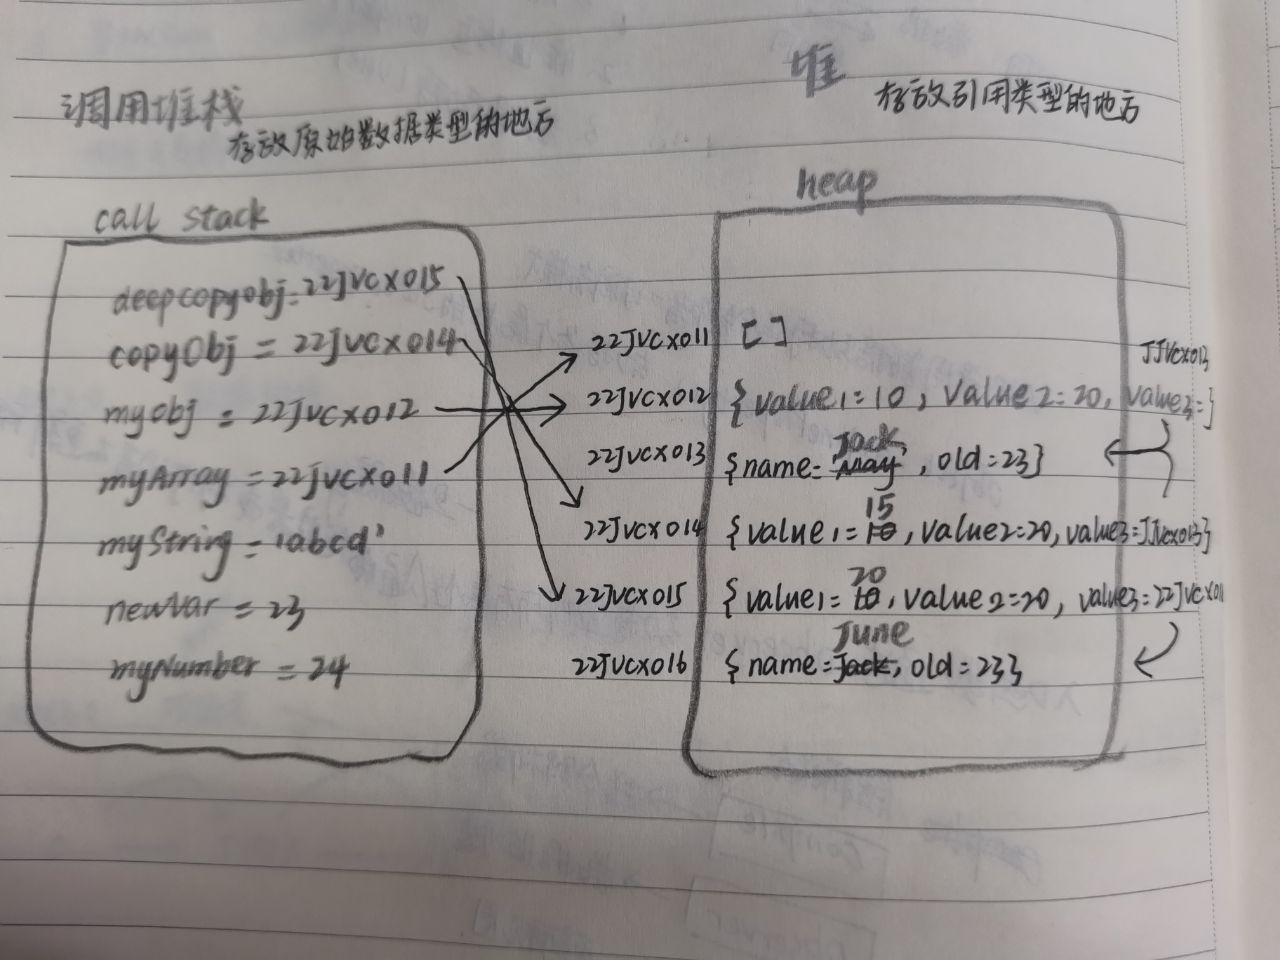 堆
存放引用类型的地方
调用堆栈
存放原始数据类型的地方
heap
call stack
deepcopyobj=22JVCX015
copyObj = 22JVCX014
myobj = 22JVCX012
myArray = 22JVCX011
myString = 'abcd'
newVar = 23
myNumber = 24
22JVCX011 []
JJVCX013
22JVCX012 {value1=10, Value2=20, value3=}
Jack
22JVCX013 {name=May, old=23}
15
22JVCX014 {value1=10, value2=20, value3=JJVCX013}
20
22JVCX015 {value1=10, value2=20, value3=22JVCX01
June
22JVCX016 {name=Jack, old=23}